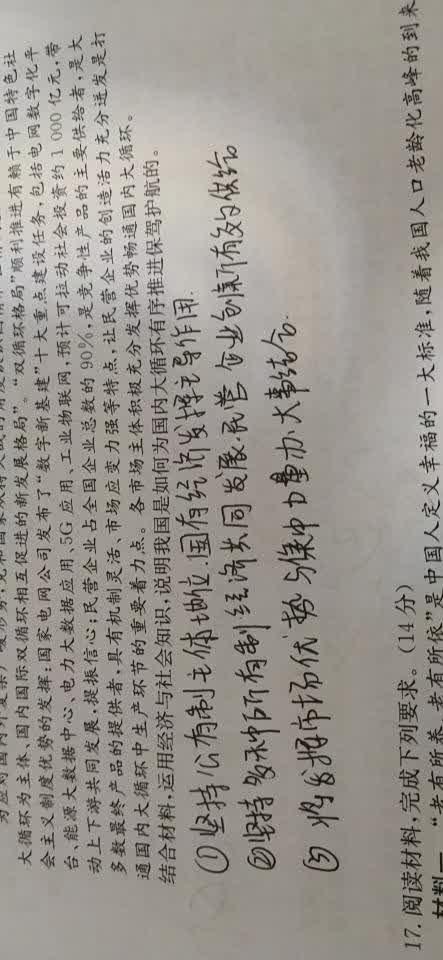 大循环为主体、国内国际双循环相互促进的新发展格局”。“双循环格局”顺利推进有赖于中国特色社
会主义制度优势的发挥：国家电网公司发布了“数字新基建”十大重点建设任务，包括电网数字化平
台、能源大数据中心、电力大数据应用、5G应用、工业物联网，预计可拉动社会投资约1 000亿元，带
动上下游共同发展，提振信心；民营企业占全国企业总数的90%，是竞争性产品的主要供给者，是大
多数最终产品的提供者，具有机制灵活、市场应变力强等特点，让民营企业的创造活力充分迸发是打
通国内大循环中生产环节的重要着力点。各市场主体积极充分发挥优势畅通国内大循环。
结合材料，运用经济与社会知识，说明我国是如何为国内大循环有序推进保驾护航的。
①坚持公有制主体地位.国有经济发挥主导作用.
②坚持多种所有制经济共同发展.民营企业创新有效供给
③将发挥市场优势与集中力量办大事结合.
17. 阅读材料，完成下列要求。(14分)
材料一 “老有所养、老有所依”是中国人定义幸福的一大标准，随着我国人口老龄化高峰的到来